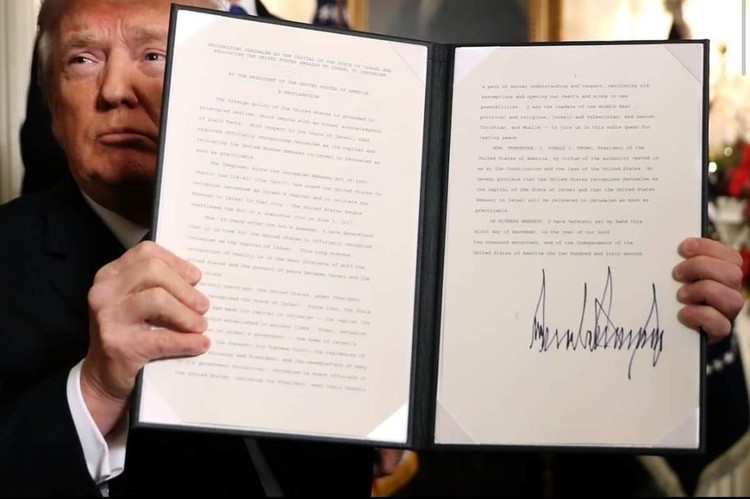 RECOGNIZING JERUSALEM AS THE CAPITAL OF THE STATE OF ISRAEL AND
RELOCATING THE UNITED STATES EMBASSY TO ISRAEL TO JERUSALEM
BY THE PRESIDENT OF THE UNITED STATES OF AMERICA
A PROCLAMATION
The foreign policy of the United States is grounded in
principled realism, which begins with an honest acknowledgment
of plain facts. With respect to the State of Israel, that
requires officially recognizing Jerusalem as its capital and
relocating the United States Embassy to Israel to Jerusalem as
soon as practicable.
The Congress, since the Jerusalem Embassy Act of 1995
(Public Law 104-45) (the "Act"), has urged the United States to
recognize Jerusalem as Israel's capital and to relocate our
Embassy to Israel to that city. The United States Senate
reaffirmed the Act in a unanimous vote on June 5, 2017.
Now, 22 years after the Act's passage, I have determined
that it is time for the United States to officially recognize
Jerusalem as the capital of Israel. This long overdue
recognition of reality is in the best interests of both the
United States and the pursuit of peace between Israel and the
years ago, the United States, under President
recognized the State of Israel. Since then, the State
of Israel's government -- the home of Israel's
the Supreme Court, the residences of
Minister and President, and the headquarters of many
government ministries. Jerusalem is where officials of
the United States, including the President, meet their Israeli
a path of mutual understanding and respect, rethinking old
assumptions and opening our hearts and minds to new
possibilities. I ask the leaders of the Middle East --
political and religious, Israeli and Palestinian, and Jewish,
Christian, and Muslim -- to join us in this noble quest for
lasting peace.
NOW, THEREFORE, I, DONALD J. TRUMP, President of the
United States of America, by virtue of the authority vested in
me by the Constitution and the laws of the United States, do
hereby proclaim that the United States recognizes Jerusalem as
the capital of the State of Israel and that the United States
Embassy to Israel will be relocated to Jerusalem as soon as
practicable.
IN WITNESS WHEREOF, I have hereunto set my hand this
sixth day of December, in the year of our Lord
two thousand seventeen, and of the Independence of the
United States of America the two hundred and forty-second.